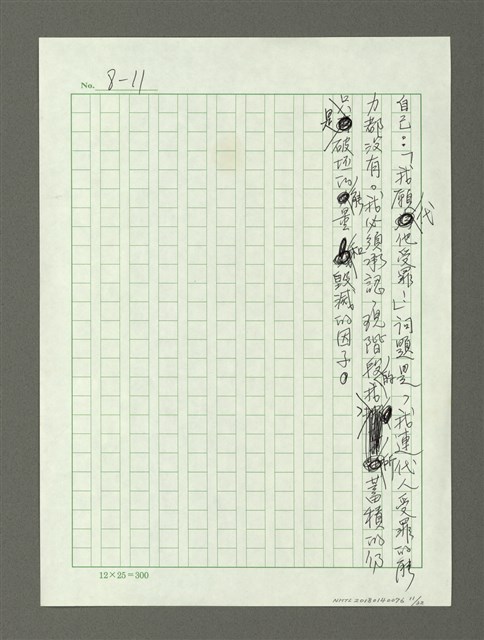 No. 8-11
自己：「我願代他受罪！」问題是，我連代人受罪的能
力都沒有。我必須承認，現階段的我，所蓄積的仍
只是破坏的能量和毀滅的因子。
12×25=300
NMTL 20130140096 11/22